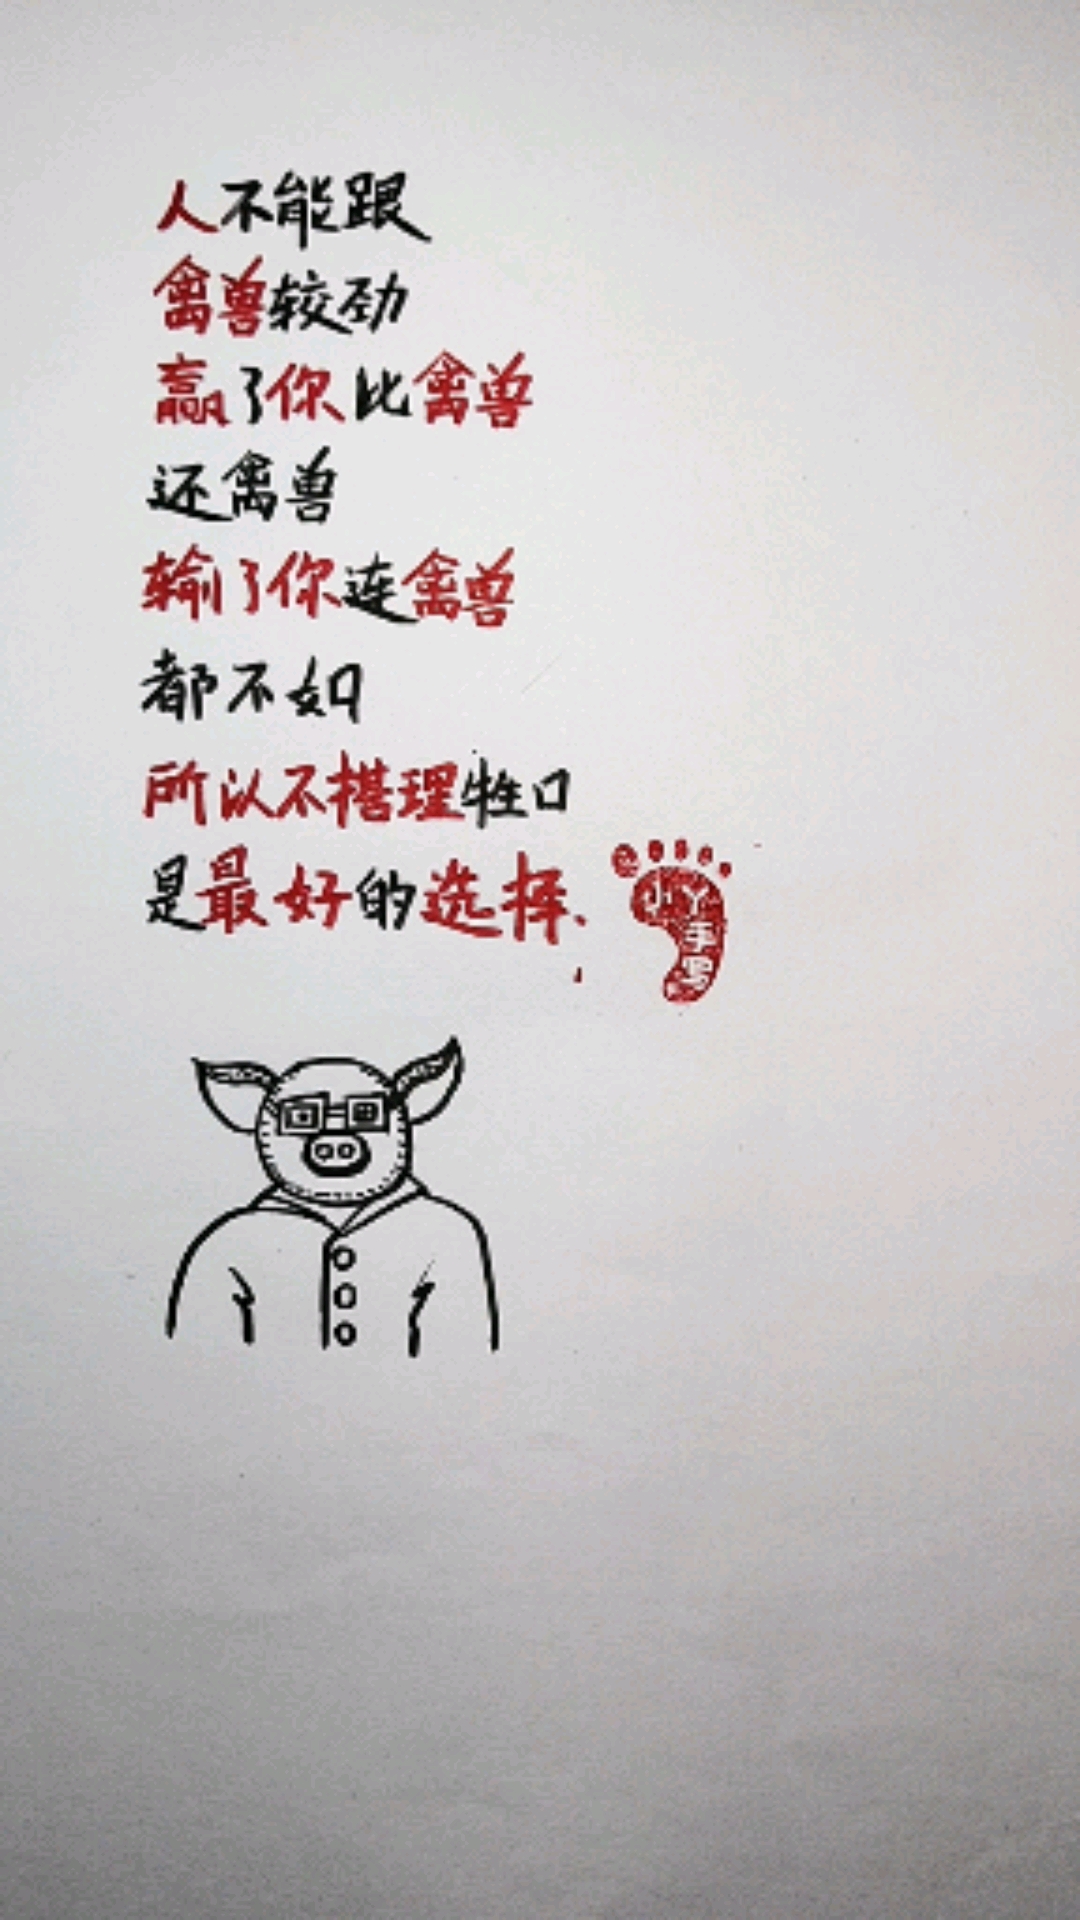 人不能跟
禽兽较劲
赢了你比禽兽
还禽兽
输了你连禽兽
都不如
所以不搭理牲口
是最好的选择、
小丫手写